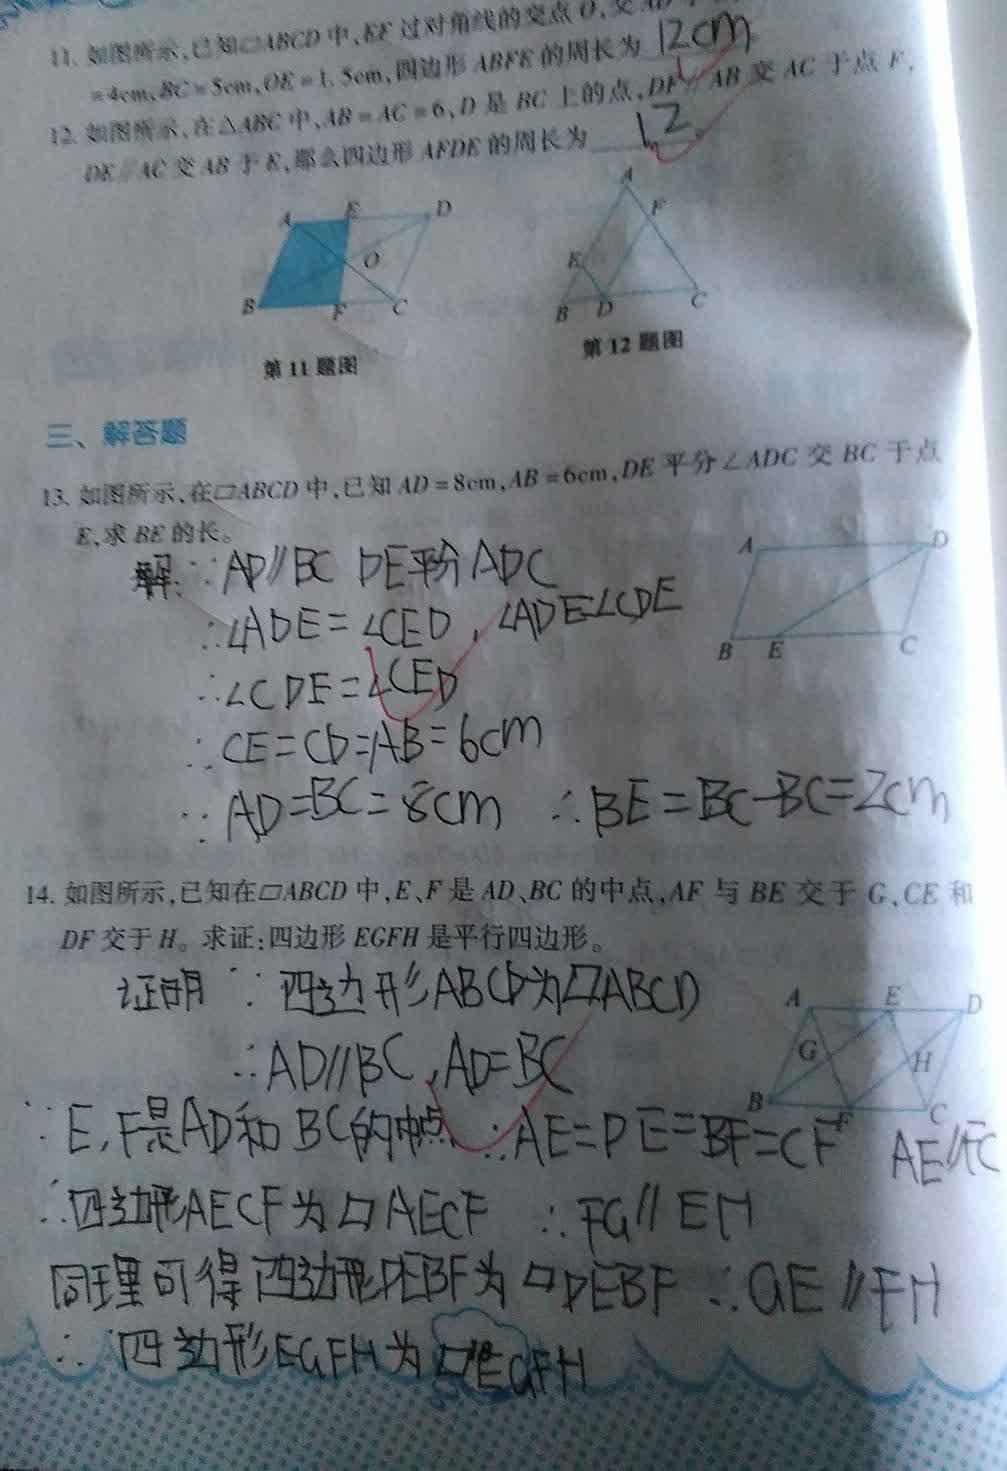 11. 如图所示,已知▱ABCD中,EF过对角线的交点O,交AD
=4cm,BC=5cm,OE=1.5cm,四边形ABFE的周长为 12cm
12. 如图所示,在△ABC中,AB=AC=6,D是BC上的点,DF∥AB交AC于点F,
DE∥AC交AB于E,那么四边形AFDE的周长为 12
A E D
O
B F C
第11题图
A
F
E
B D C
第12题图
三、解答题
13. 如图所示,在▱ABCD中,已知AD=8cm,AB=6cm,DE平分∠ADC交BC于点
E,求BE的长。
解: ∵AD∥BC DE平分ADC
∴∠ADE=∠CED,∠ADE=∠CDE
∴∠CDE=∠CED
∴CE=CD=AB=6cm
∵AD=BC=8cm ∴BE=BC-BC=2cm
A D
B E C
14. 如图所示,已知在▱ABCD中,E、F是AD、BC的中点,AF与BE交于G,CE和
DF交于H。求证:四边形EGFH是平行四边形。
证明 ∵四边形ABCD为▱ABCD
∴AD∥BC,AD=BC
∵E,F是AD和BC的中点 ∴AE=DE=BF=CF AE∥FC
∴四边形AECF为▱AECF ∴FG∥EH
同理可得四边形DEBF为▱DEBF ∴GE∥FH
∴四边形EGFH为▱EGFH
A E D
G H
B F C